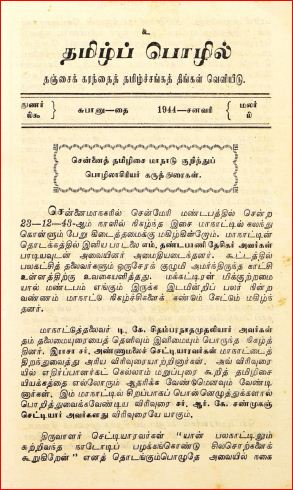 உ
தமிழ்ப் பொழில்
தஞ்சைக் கரந்தைத் தமிழ்ச்சங்கத் திங்கள் வெளியீடு.
துணர்
சுபானு—தை
1944—சனவரி
மலர்
சென்னைத் தமிழிசை மாநாடு குறித்துப்
பொழிலாசிரியர் கருத்துரைகள்.
சென்னைமாநகரில் சென்மேரி மண்டபத்தில் சென்ற
23—12—43-ஆம் நாளில் நிகழ்ந்த இசை மாநாட்டில் கலந்து
கொள்ளும் பேறு கிடைத்தமைக்கு மகிழ்கின்றோம். மாநாட்டின்
தொடக்கத்தில் இனிய பாடலை எம். தண்டபாணி தேசிகர் அவர்கள்
பாடியவுடன் அவையினர் அமைதியடைந்தனர். கூட்டத்தில்
பலகட்சித் தலைவர்களும் ஒருசேரக் குழுமி அமர்ந்திருந்த காட்சி
உள்ளத்திற்கு உவகையளித்தது. மக்கட்டிரள் மிக்குற்றமை
யால் மண்டபம் எங்கும் இருக்க இடமின்றிப் பலர் நின்ற
வண்ணம் மாநாட்டு நிகழ்ச்சிகளைக் கண்டும் கேட்டும் மகிழ்ந்
தனர்.
மாநாட்டுத்தலைவர் டி. கே. சிதம்பரநாதமுதலியார் அவர்கள்
தம் தலைமையுரையைத் தெளிவும் இனிமையும் பொருந்த நிகழ்த்
தினர். இராசா சர். அண்ணாமலைச் செட்டியாரவர்கள் மாநாட்டைத்
திறந்துவைத்து அரிய விரிவுரையாற்றினார்கள். அவ் விரிவுரை
யில் எதிர்ப்பாளர்கட் கெல்லாம் மறுப்புரை கூறித் தமிழிசை
யியக்கத்தை எல்லோரும் ஆதரிக்க வேண்டுமெனவும் வேண்டி
னார்கள். இம் மாநாட்டில் சிறப்பாகப் பொன்னெழுத்துக்களால்
பொறித்துவைக்கவேண்டிய விரிவுரை சர். ஆர். கே. சண்முகஞ்
செட்டியார் அவர்களது விரிவுரையே யாகும்.
திருவாளர் செட்டியாரவர்கள் “யான் பலநாட்டிலும்
சுற்றிவந்த நாடோடிப் பழக்கங்கொண்டு சிலசொற்களைக்
கூறுகிறேன்” எனத் தொடங்கும்பொழுதே அவையில் நகை